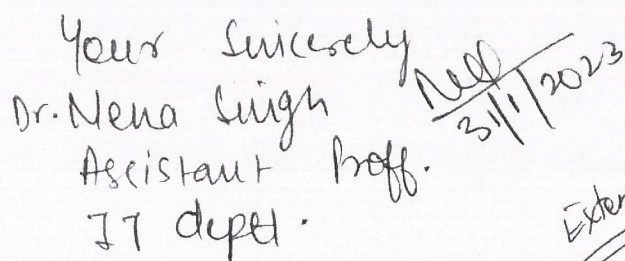 Your Sincerely
Dr. Nena Singh
Assistant Proff.
IT deptt.
31/1/2023